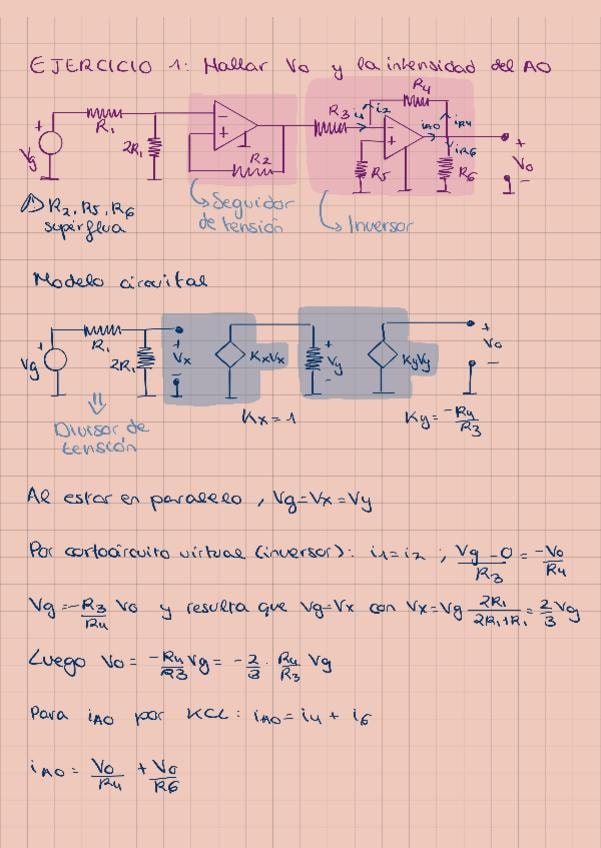 EJERCICIO 1: Hallar Vo y la intensidad del AO
R1
2R1
Vg
+
-
+
R2
R3
i1
i2
R4
iAO
iR4
iR6
-
+
R5
R6
+
Vo
-
⚠ R2, R5, R6
superflua
Seguidor
de tensión
Inversor
Modelo circuital
Vg
+
R1
2R1
+
Vx
-
KxVx
+
Vy
-
KyVy
+
Vo
-
Divisor de
tensión
Kx=1
Ky= -R4/R3
Al estar en paralelo, Vg=Vx=Vy
Por cortocircuito virtual (inversor): i1=i2 ; Vg-0/R3 = -Vo/R4
Vg=-R3/R4 Vo y resulta que Vg=Vx con Vx=Vg 2R1/2R1+R1 = 2/3 Vg
Luego Vo= -R4/R3 Vg= -2/3 · R4/R3 Vg
Para iAO por KCL: iAO= i4 + i6
iAO= Vo/R4 + Vo/R6